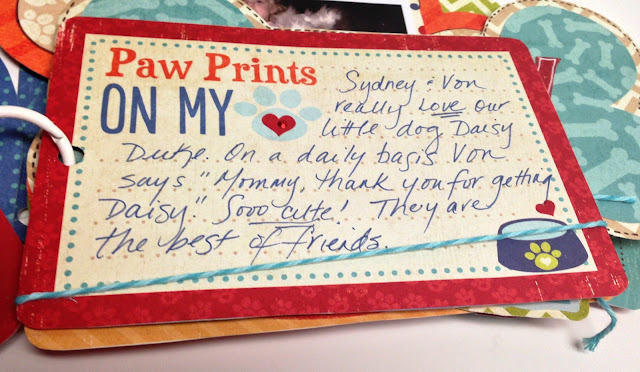 Paw Prints
ON MY
Sydney & Von
really love our
little dog Daisy
Duke. On a daily basis Von
says "Mommy, thank you for getting
Daisy." Sooo cute! They are
the best of friends.